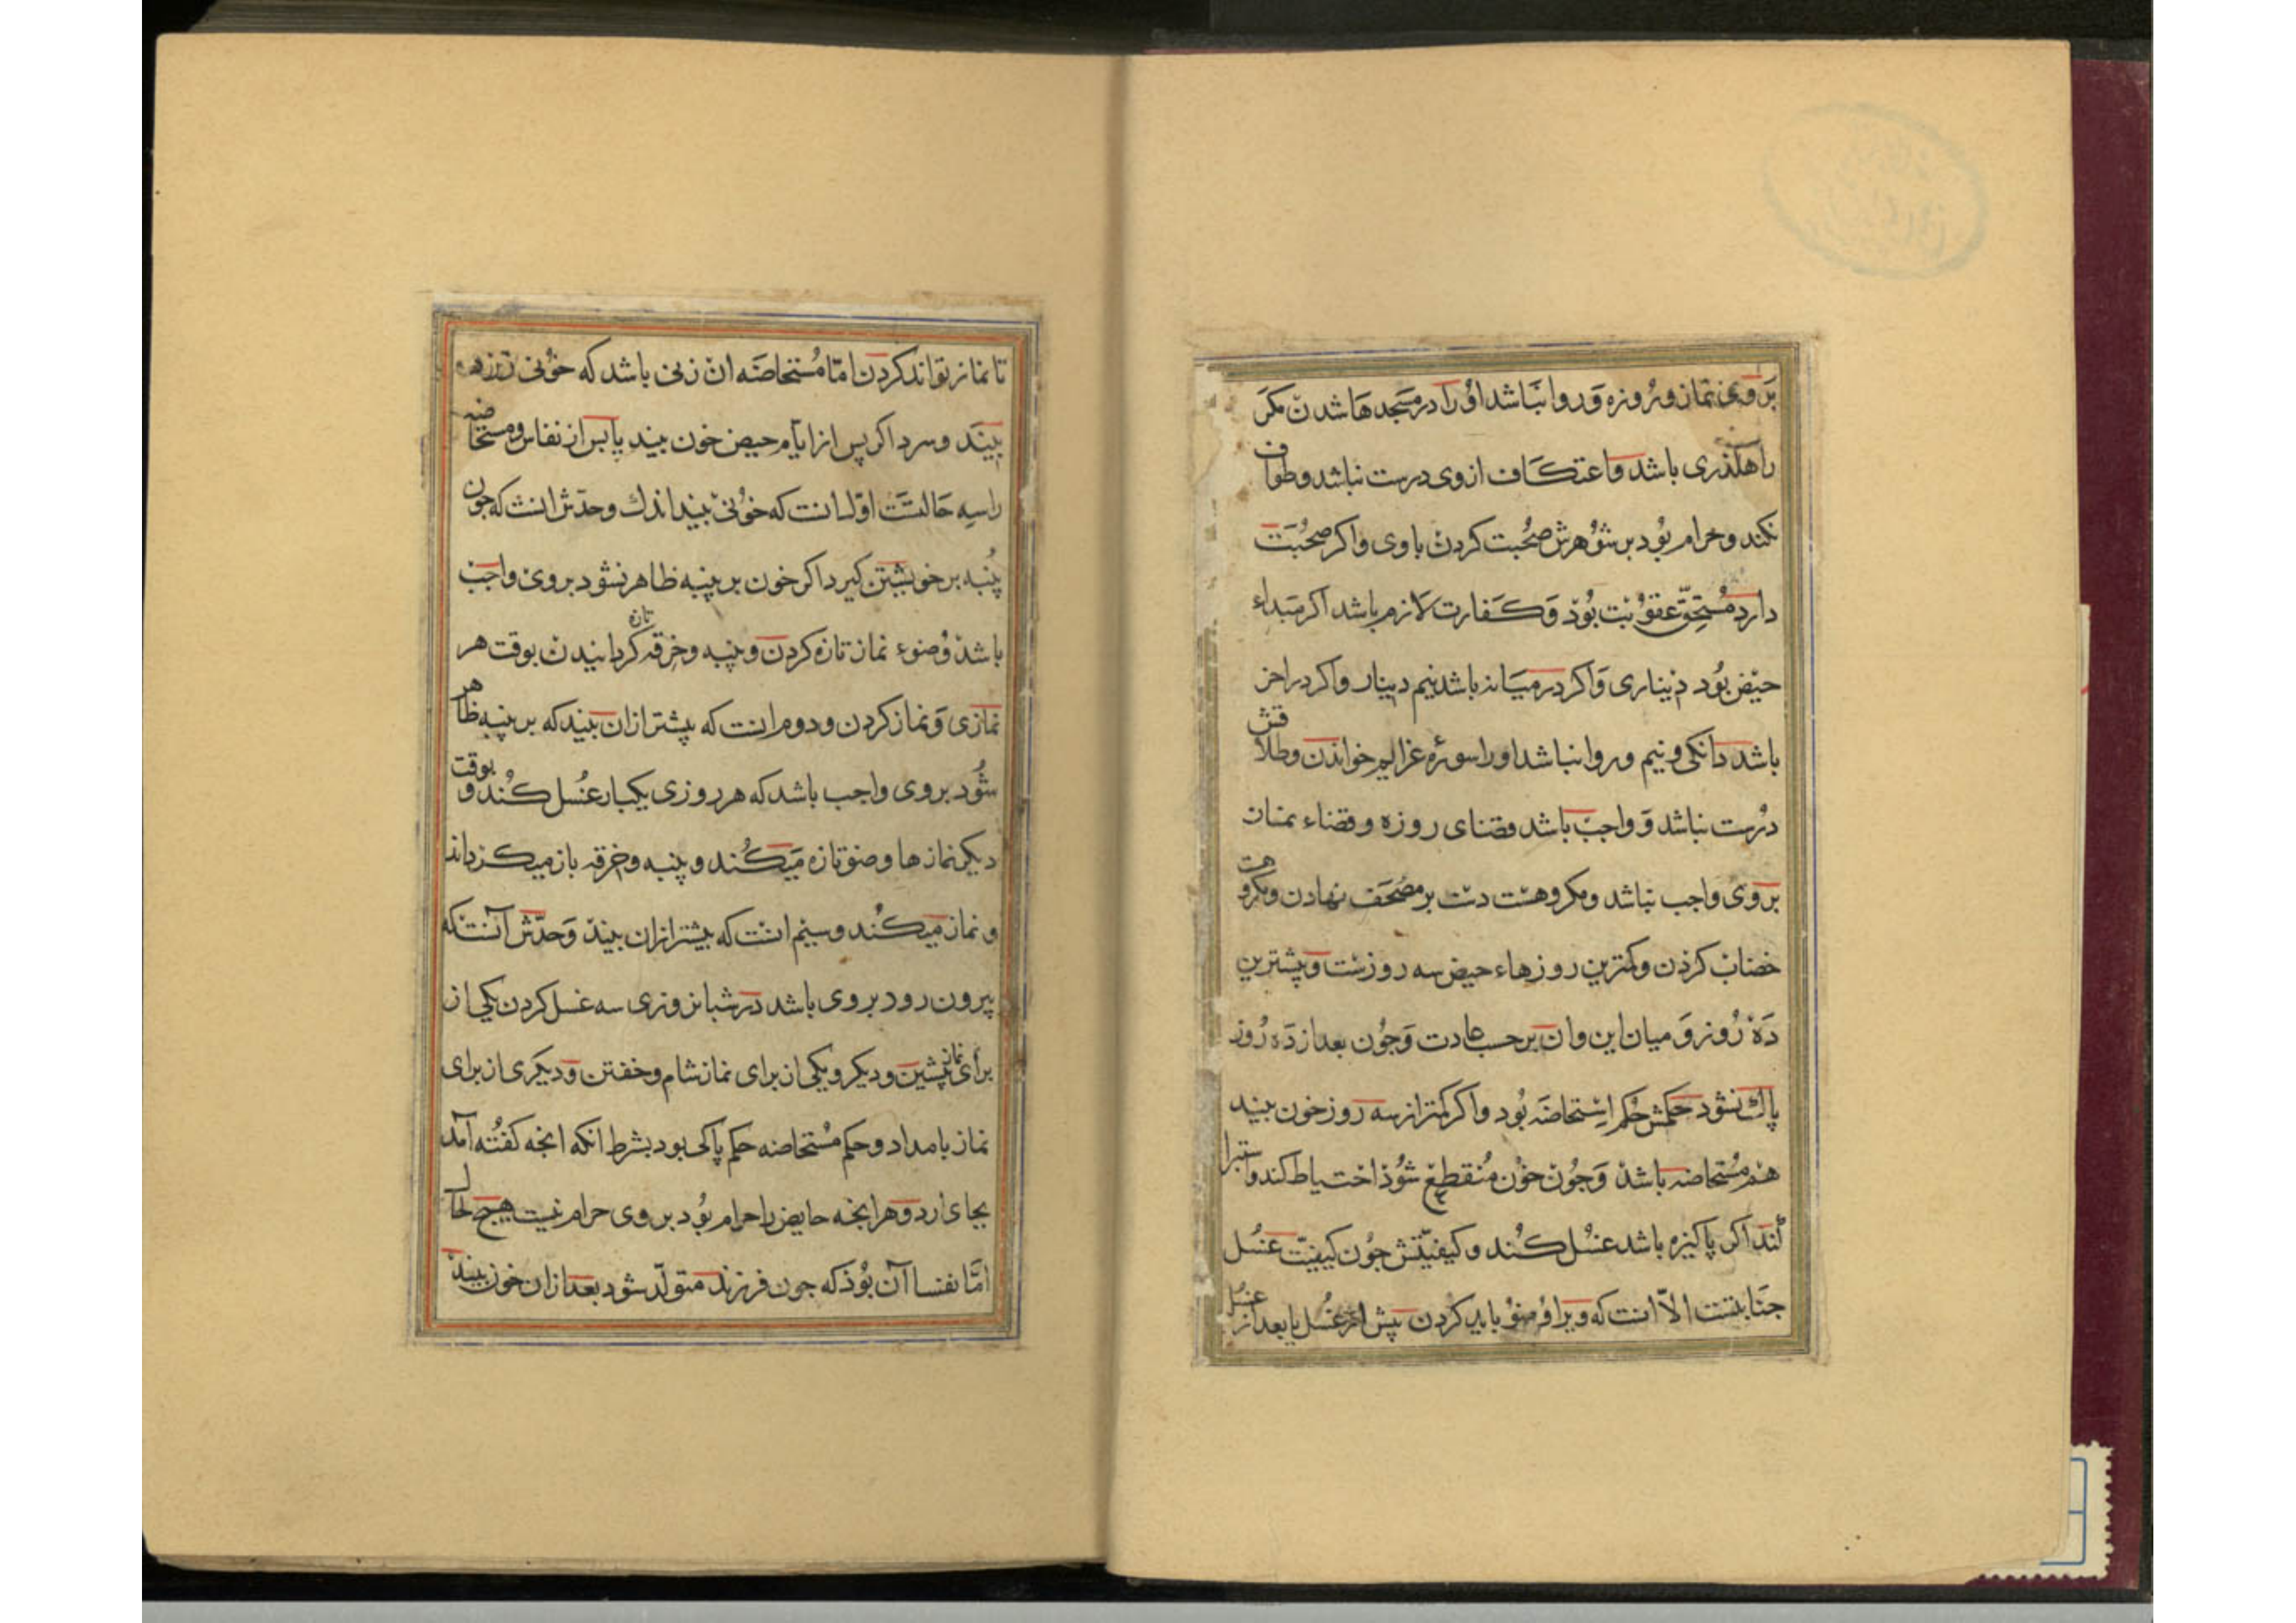 بروی نماز و روزه و روا نباشد او را در مسجدها شدن مکر
راهکذری باشد و اعتکاف از وی درست نباشد و طواف
نکند و حرام بود بر شوهرش صحبت کردن با وی و اکر صحبت
دارد مستحق عقوبت بود و کفارت لازم باشد اکر مبداء
حیض بود دیناری و اکر در میانه باشد نیم دینار و اکر در آخر
باشد دانکی و نیم و روا نباشد او را سورهٔ عزایم خواندن و طلاقش
درست نباشد و واجب باشد قضای روزه و قضاء نماز
بروی واجب نباشد و مکروهست دست بر مصحف نهادن و مکروهت
خضاب کردن و کمترین روزهاء حیض سه روزست و بیشترین
ده روز و میان این و ان بر حسب عادت و جون بعد از ده روز
پاک نشود حکمش حکم استحاضه بود و اکر کمتر از سه روز خون بیند
هم مستحاضه باشد و جون خون منقطع شود احتیاط کند و استبرا
کند اکر پاکیزه باشد غسل کند و کیفیتش جون کیفیت غسل
جنابتست الا انست که ویرا وضو باید کردن پیش از غسل یا بعد از غسل
تا نماز تواند کردن اما مستحاضه ان زنی باشد که خونی زرد
بیند و سرد اکر پس از ایام حیض خون بیند یا پس از نفاس و مستحاضه
را سه حالتست اول انست که خونی بیند اندک و حدش انست که جون
پنبه بر خویشتن کیرد اکر خون بر پنبه ظاهر نشود بروی واجب
باشد وضوء نماز تازه کردن و پنبه و خرقه تازه کردانیدن بوقت هر
نمازی و نماز کردن و دوم انست که بیشتر از ان بیند که بر پنبه ظاهر
شود بروی واجب باشد که هر روزی یکبار غسل کند و بوقت
دیکر نمازها وضو تازه میکند و پنبه و خرقه باز میکرداند
و نماز میکند و سیم انست که بیشتر از ان بیند و حدش آنست که
بیرون رود بروی باشد در شبانروزی سه غسل کردن یکی از
برای نماز پیشین و دیکر و یکی از برای نماز شام و خفتن و دیکری از برای
نماز بامداد و حکم مستحاضه حکم پاکی بود بشرط انکه انجه کفته آمد
بجای ارد و هر انجه حایض را حرام بود بروی حرام نیست هیچ حال
اما نفسا آن بود که جون فرزند متولد شود بعد از ان خون بیند